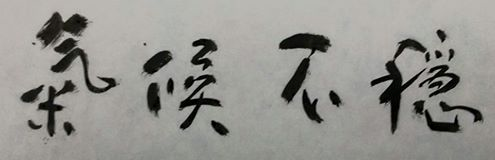 氣候不穩